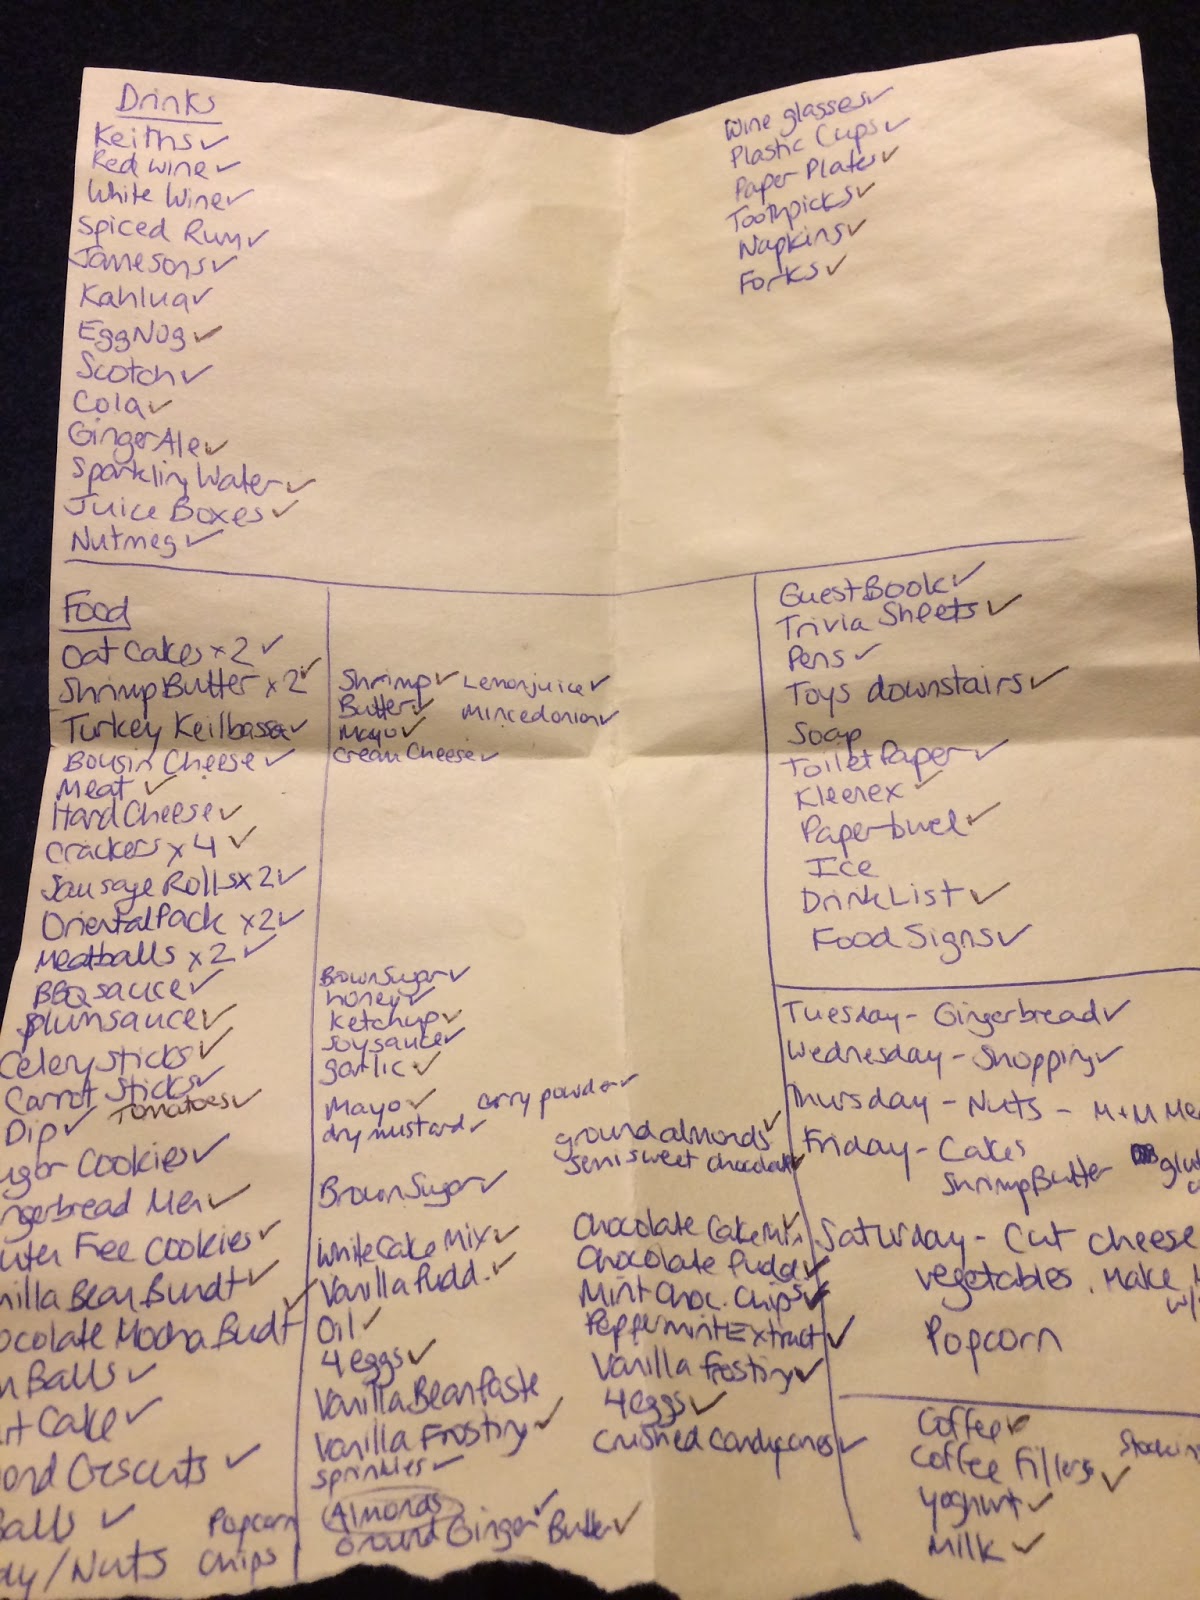 Drinks
Keiths ✓
Red wine ✓
White Wine ✓
Spiced Rum ✓
Jamesons ✓
Kahlua ✓
EggNog ✓
Scotch ✓
Cola ✓
Ginger Ale ✓
Sparkling Water ✓
Juice Boxes ✓
Nutmeg ✓
Wine glasses ✓
Plastic Cups ✓
Paper Plates ✓
Toothpicks ✓
Napkins ✓
Forks ✓
Food
Oat Cakes x 2 ✓
Shrimp Butter x 2 ✓
Turkey Keilbassa ✓
Bousin Cheese ✓
Meat ✓
Hard Cheese ✓
Crackers x 4 ✓
Sausage Rolls x2 ✓
Oriental Pack x2 ✓
Meatballs x2 ✓
BBQ sauce ✓
plumsauce ✓
Celery sticks ✓
Carrot Sticks ✓
Dip ✓ Tomatoes ✓
ugar Cookies ✓
ngerbread Men ✓
uten Free Cookies ✓
nilla Bean Bundt ✓
ocolate Mocha Bundt ✓
Balls ✓
Cake ✓
ond Crescents ✓
Balls ✓ Popcorn
dy/Nuts Chips
Shrimp ✓ Lemonjuice ✓
Butter ✓ Mincedonion ✓
Mayo ✓
Cream Cheese ✓
Brown Sugar ✓
honey ✓
Ketchup ✓
Soysauce ✓
garlic ✓
Mayo ✓ curry powder ✓
dry mustard ✓
ground almonds ✓
Semi sweet chocolate ✓
Brown Sugar ✓
White Cake Mix ✓
Vanilla Pudd. ✓
Oil ✓
4 eggs ✓
Vanilla Bean Paste
Vanilla Frosting ✓
sprinkles ✓
Almonds
Ground Ginger ✓ Butter ✓
Chocolate Cake Mix ✓
Chocolate Pudd ✓
Mint Choc. Chips ✓
Peppermint Extract ✓
Vanilla Frosting ✓
4 eggs ✓
Crushed Candycanes ✓
Guest Book ✓
Trivia Sheets ✓
Pens ✓
Toys downstairs ✓
Soap
Toilet Paper ✓
Kleenex ✓
Papertowel ✓
Ice
Drink List ✓
Food Signs ✓
Tuesday - Gingerbread ✓
Wednesday - Shopping ✓
Thursday - Nuts - M+M Me
Friday - Cakes
Shrimp Butter glut
Saturday - Cut cheese
vegetables. Make
w/
Popcorn
Coffee ✓
Coffee Filters ✓ Stockin
Yoghurt ✓
Milk ✓